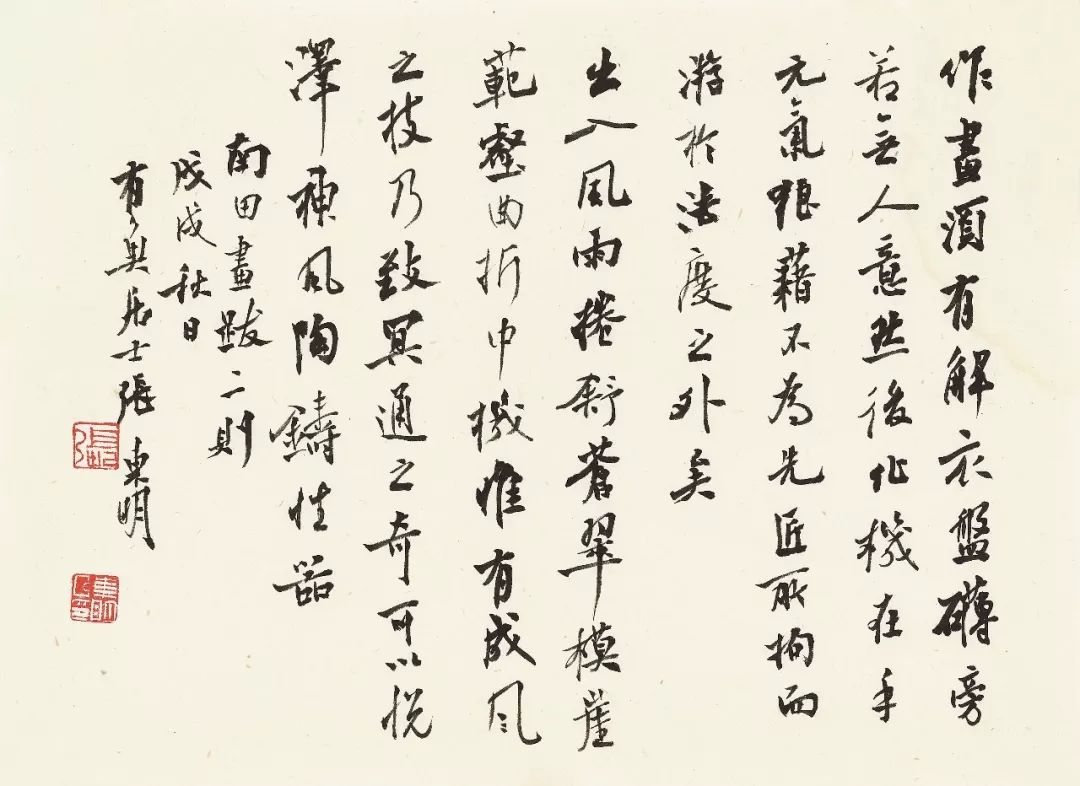 作畫須有解衣盤礴旁
若無人意然後化機在手
元氣狼藉不為先匠所拘而
游於法度之外矣
出入風雨捲舒蒼翠模崖
範壑曲折中機惟有成風
之技乃致冥通之奇可以悅
澤神風陶鑄性器
南田畫跋二則
戊戌秋日
有居士張東明
張
東明之印